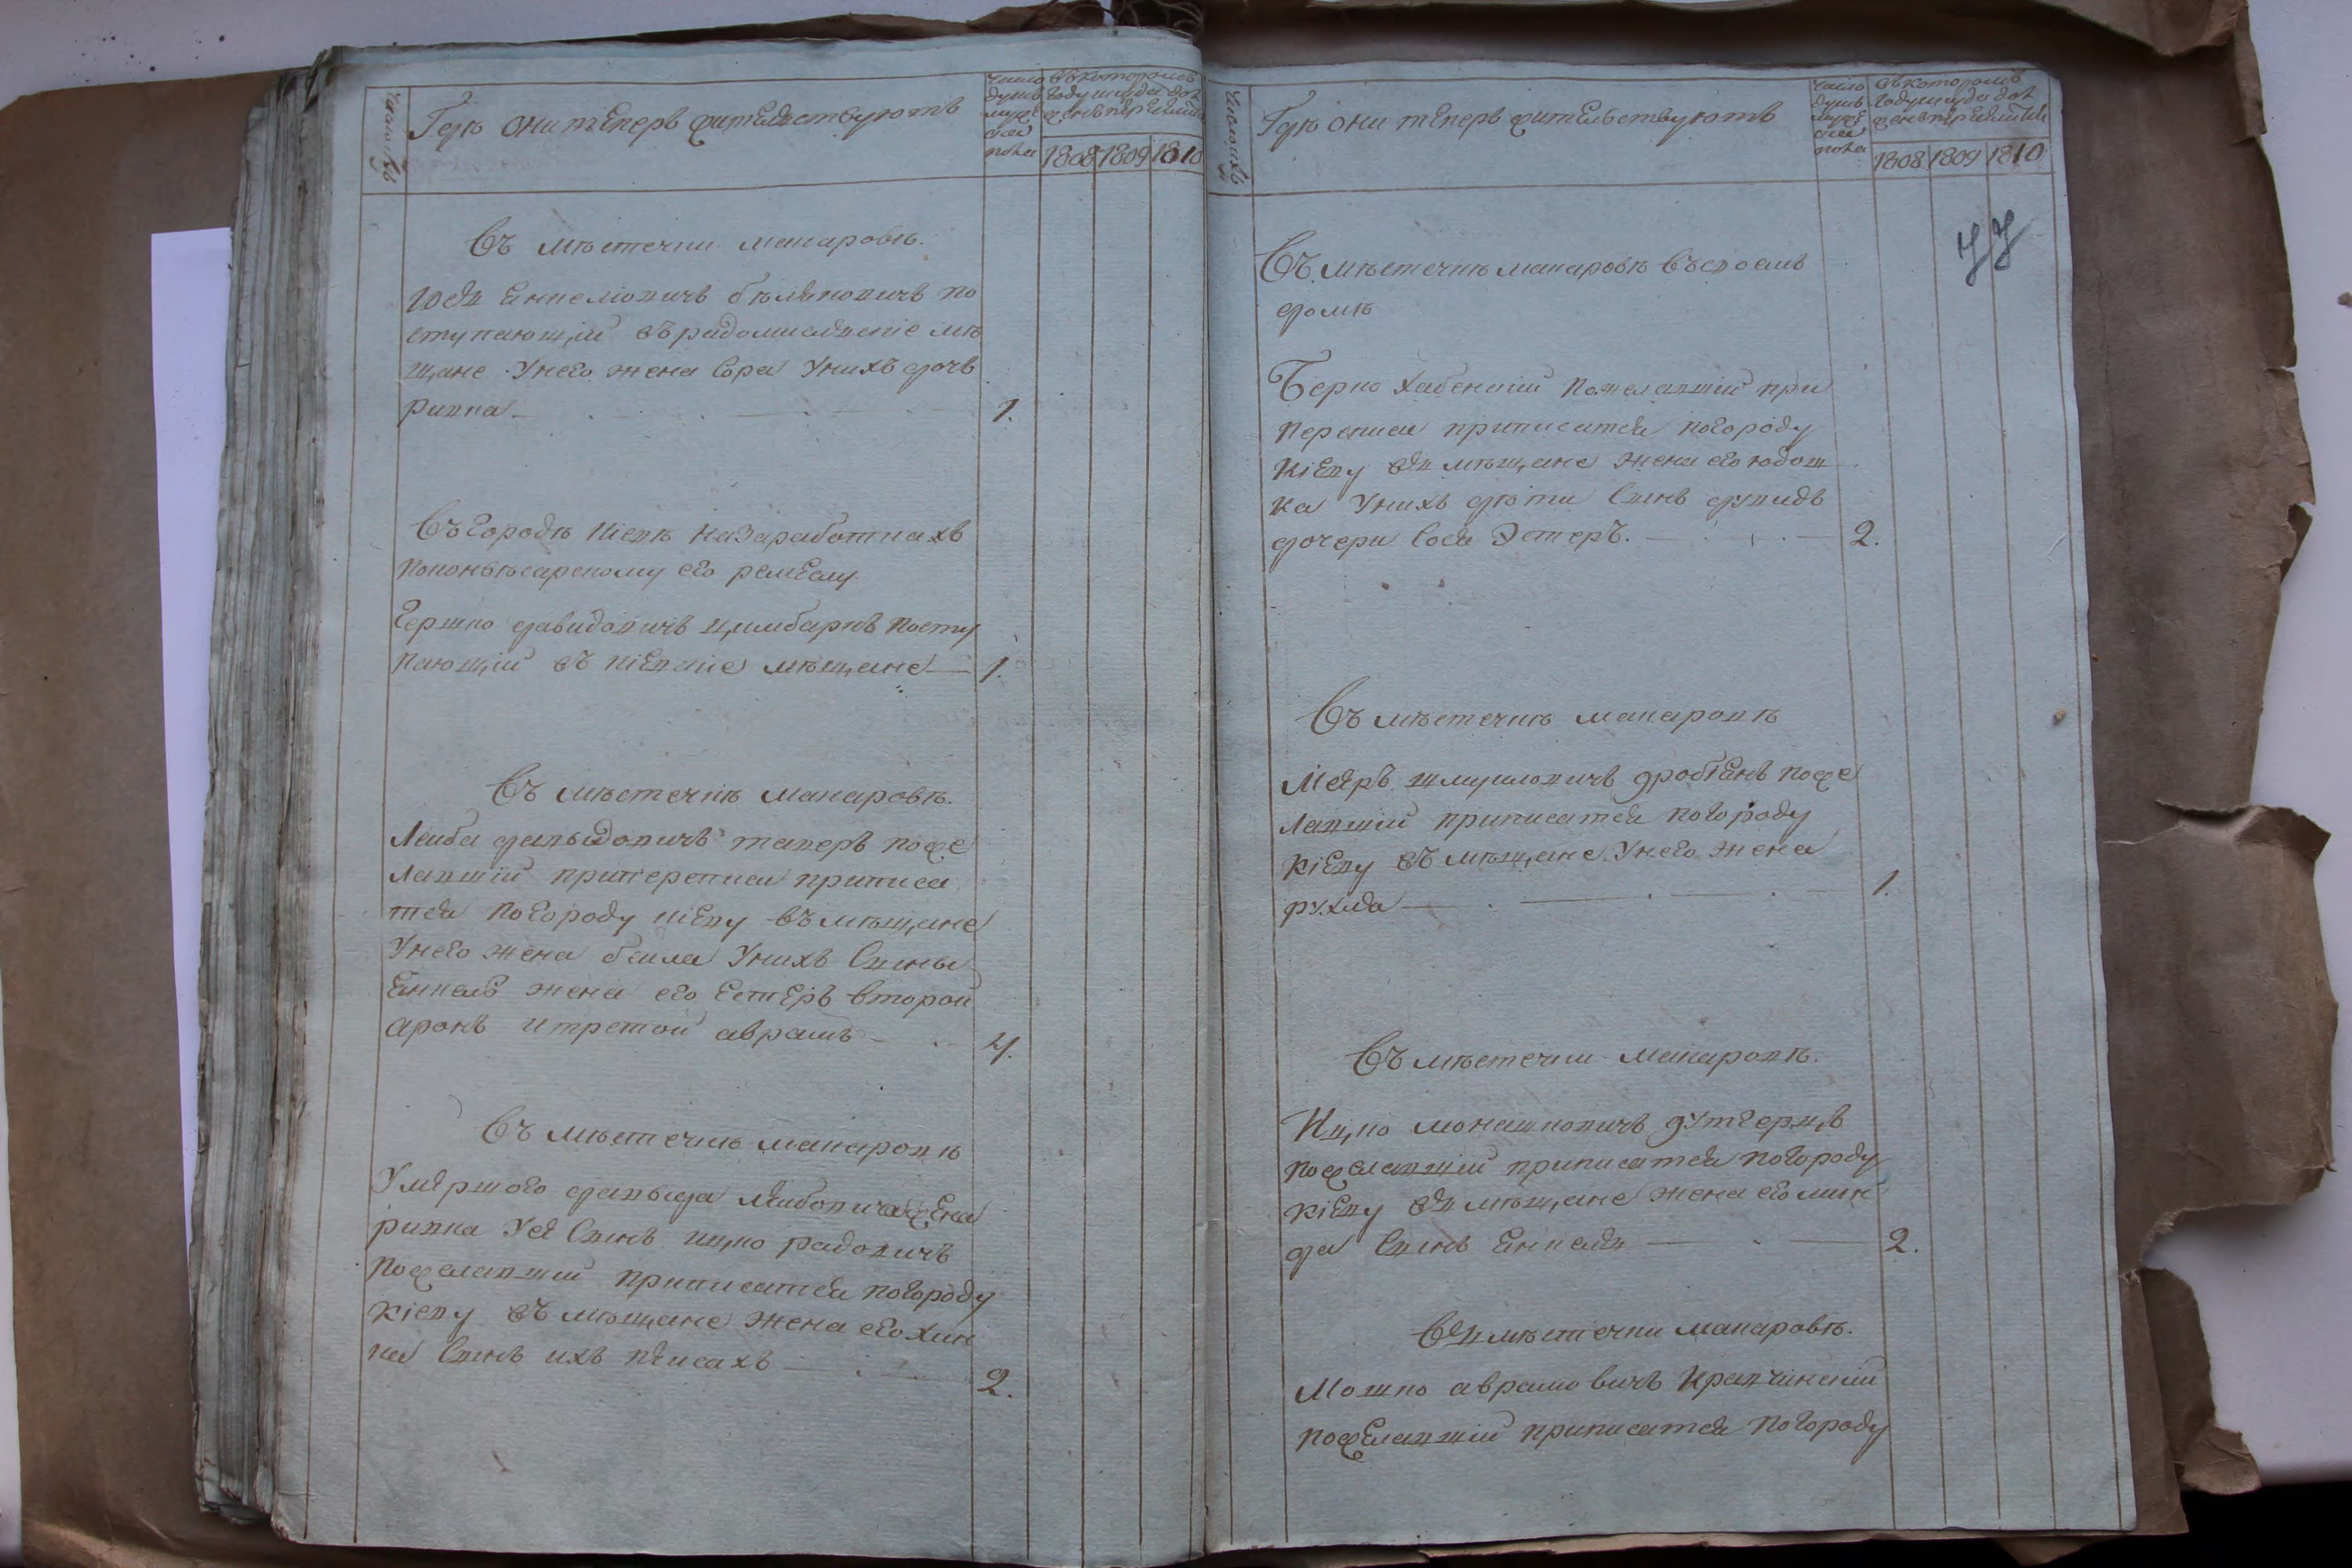 Число ихъ
Гдѣ они тѣперь жителствуютъ
число душъ мужска пола
Въ которомъ году и куда должны переити
1808 1809 1810
Въ местечки макаровѣ.
Іось Енкелювичъ белякович по
ступающій въ радомисльскіе мѣ
щане у него жена Сора у нихъ дочь
ривка
1.
Въ городѣ Кіевѣ на заработкахъ
по его ремеслу
Гершко давидовичъ цимбарнъ посту
пающій въ кіевскіе мѣщане
1.
Въ мѣстечкѣ макаровѣ.
Леиба давыдовичъ таперъ поже
лавшій при переписи приписа
тся по городу кіеву въ мѣщане
у него жена беила у нихъ Сины
Енкель жена его Естеръ второи
аронъ и третои аврамъ
4.
Въ мѣстечкѣ макаровѣ
Умершого давыда лейбовича жена
ривка у ей Синъ ицко радовичъ
пожелавшіи приписатся по городу
кіеву въ мѣщане жена его хин
ка Синъ ихъ пейсахъ
2.
Число ихъ
Гдѣ они тѣперь жителствуютъ
число душъ мужска пола
Въ которомъ году и куда должны переити
1808 1809 1810
77
Въ мѣстечкѣ макаровѣ въ своемъ
домѣ
Берко хабенскій пожелавшій при
переписи приписатся по городу
кіеву въ мѣщане жена его
ка у нихъ дѣти Синъ дувидъ
дочери Сося Эстеръ.
2.
Въ мѣстечкѣ макаровѣ
Меиръ шмуиловичъ пože
лавшій приписатся по городу
кіеву въ мѣщане у него жена
рухля
1.
Въ мѣстечки макаровѣ.
Ицко монашковичъ
пожелавшій приписатся по городу
кіеву въ мѣщане жена его мин
да Синъ Енкель
2.
Въ мѣстечки макаровѣ.
Мошко аврамовичъ Кравчинскій
пожелавшій приписатся по городу